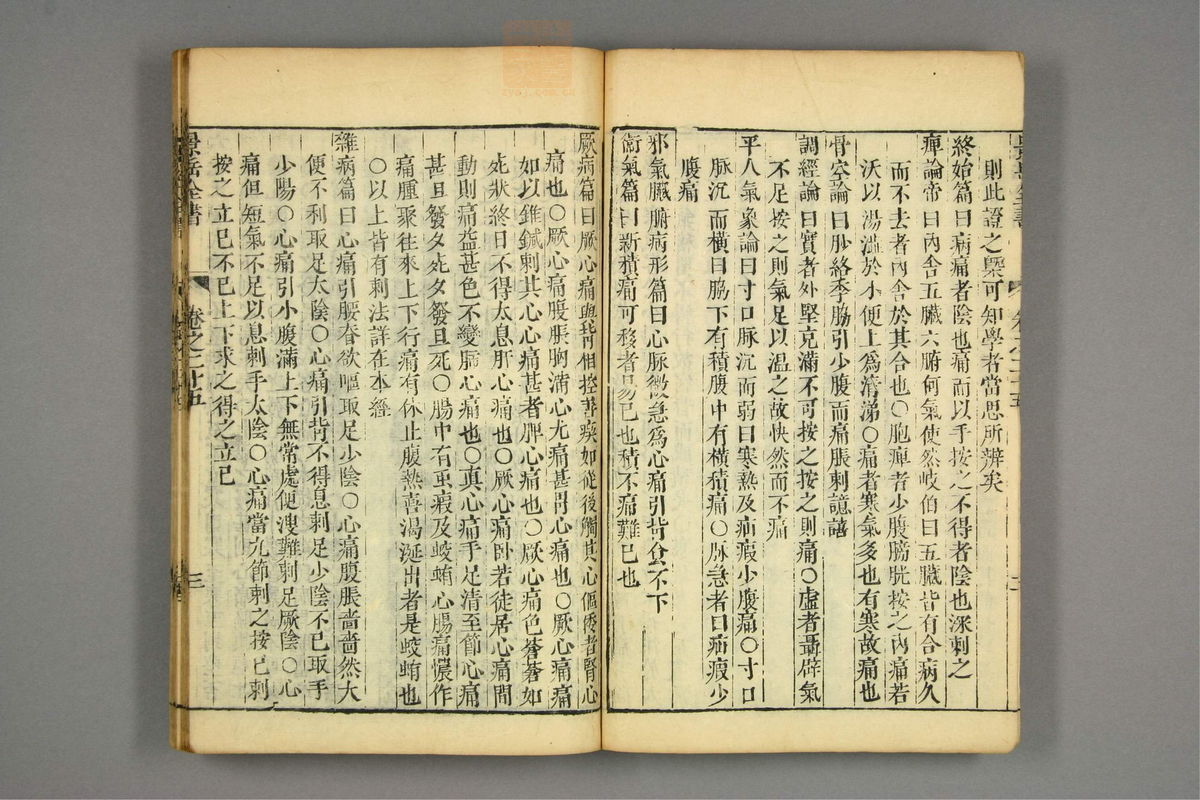 則此證之槩可知學者當思所辨矣
終始篇曰病痛者陰也痛而以手按之不得者陰也深刺之
痺論帝曰內舍五臟六腑何氣使然岐伯曰五臟皆有合病久
而不去者內舍於其合也○胞痺者少腹膀胱按之內痛若
沃以湯澁於小便上爲清涕○痛者寒氣多也有寒故痛也
骨空論曰䏚絡季脇引少腹而痛脹刺譩譆
調經論曰實者外堅充滿不可按之按之則痛○虛者聶辟氣
不足按之則氣足以溫之故快然而不痛
平人氣象論曰寸口脉沉而弱曰寒熱及疝瘕少腹痛○寸口
脉沉而橫曰脇下有積腹中有橫積痛○脉急者曰疝瘕少
腹痛
邪氣臟腑病形篇曰心脉微急爲心痛引背食不下
衞氣篇曰新積痛可移者易已也積不痛難已也
厥病篇曰厥心痛與背相控善瘈如從後觸其心傴僂者腎心
痛也○厥心痛腹脹胸滿心尤痛甚胃心痛也○厥心痛痛
如以錐鍼刺其心心痛甚者脾心痛也○厥心痛色蒼蒼如
死狀終日不得太息肝心痛也○厥心痛卧若徒居心痛間
動則痛益甚色不變肺心痛也○真心痛手足清至節心痛
甚旦發夕死夕發旦死○腸中有蟲瘕及蛟蛕心腸痛憹作
痛腫聚往來上下行痛有休止腹熱喜渴涎出者是蛟蛕也
○以上皆有刺法詳在本經
雜病篇曰心痛引腰脊欲嘔取足少陰○心痛腹脹嗇嗇然大
便不利取足太陰○心痛引背不得息刺足少陰不已取手
少陽○心痛引小腹滿上下無常處便溲難刺足厥陰○心
痛但短氣不足以息刺手太陰○心痛當九節刺之按已刺
按之立已不已上下求之得之立已
景岳全書
卷之二十五
三